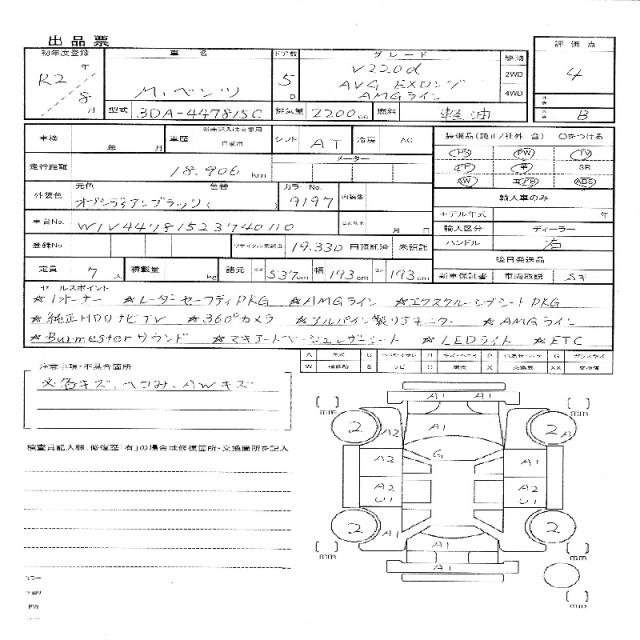 出品票
初年度登録 車名 ドア数 グレード 駆動 評価点
R2年 8月 M・ベンツ 5D V220d AVG EXロング AMGライン 2WD 4WD 4
型式 3DA-447815C 排気量 2200cc 燃料 軽油 B
車検 年 月 車歴 自家用 シフト AT 冷房 AC 装備品(純正/社外 含) ○をつける
PS PW TV
走行距離 18,906 km メーター SR
AW ABS
外装色 元色 オブシディアンブラック( 色替 カラーNo. 9197 内装色 輸入車のみ
モデル年式 年
車台No. W1V44781523740110 月 日 輸入区分 ディーラー
登録No. リサイクル預託金 19,330 円預託済 未預託 ハンドル 右
後日発送品
定員 7人 積載量 kg 諸元 長さ 537cm 幅 193cm 高さ 193cm 新車保証書 車両取説
セールスポイント
★1オーナー ★レーダーセーフティPKG ★AMGライン ★エクスクルーシブシートPKG
★純正HDDナビTV ★360°カメラ ★アルパイン製リアモニター ★AMGライン
★Burmesterサウンド ★マキアートベージュレザーシート ★LEDライト ★ETC
注意事項・不具合箇所
各キズ、ヘコミ、AWキズ
検査員記入欄、修復歴「有」の場合は修復箇所・交換箇所を記入
A1 A1
mm mm
2 A2 A1 2 A
G
A2 A1
A2 U1 A1 U1
2 A1 2
mm A1 mm
A1
mm